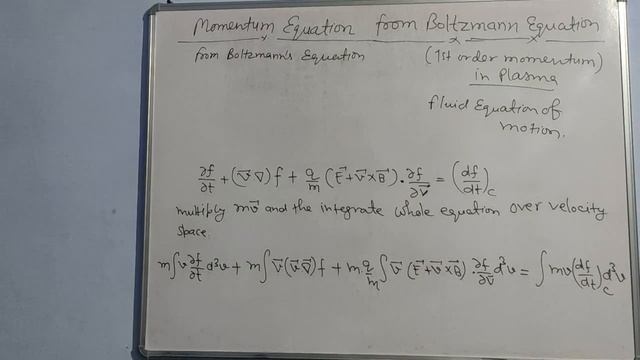 Momentum Equation from Boltzmann Equation
from Boltzmann's Equation
(1st order momentum)
in Plasma
fluid Equation of
motion.
∂f/∂t + (v⃗ ∇) f + q/m (E⃗ + v⃗ × B⃗) · ∂f/∂v⃗ = (df/dt)_c
multiply mv⃗ and the integrate whole equation over velocity
space.
m∫v ∂f/∂t d³v + m∫v⃗ (v⃗ ∇⃗) f + m q/m ∫v⃗ (E⃗ + v⃗ × B⃗) · ∂f/∂v⃗ d³v = ∫mv (df/dt)_c d³v